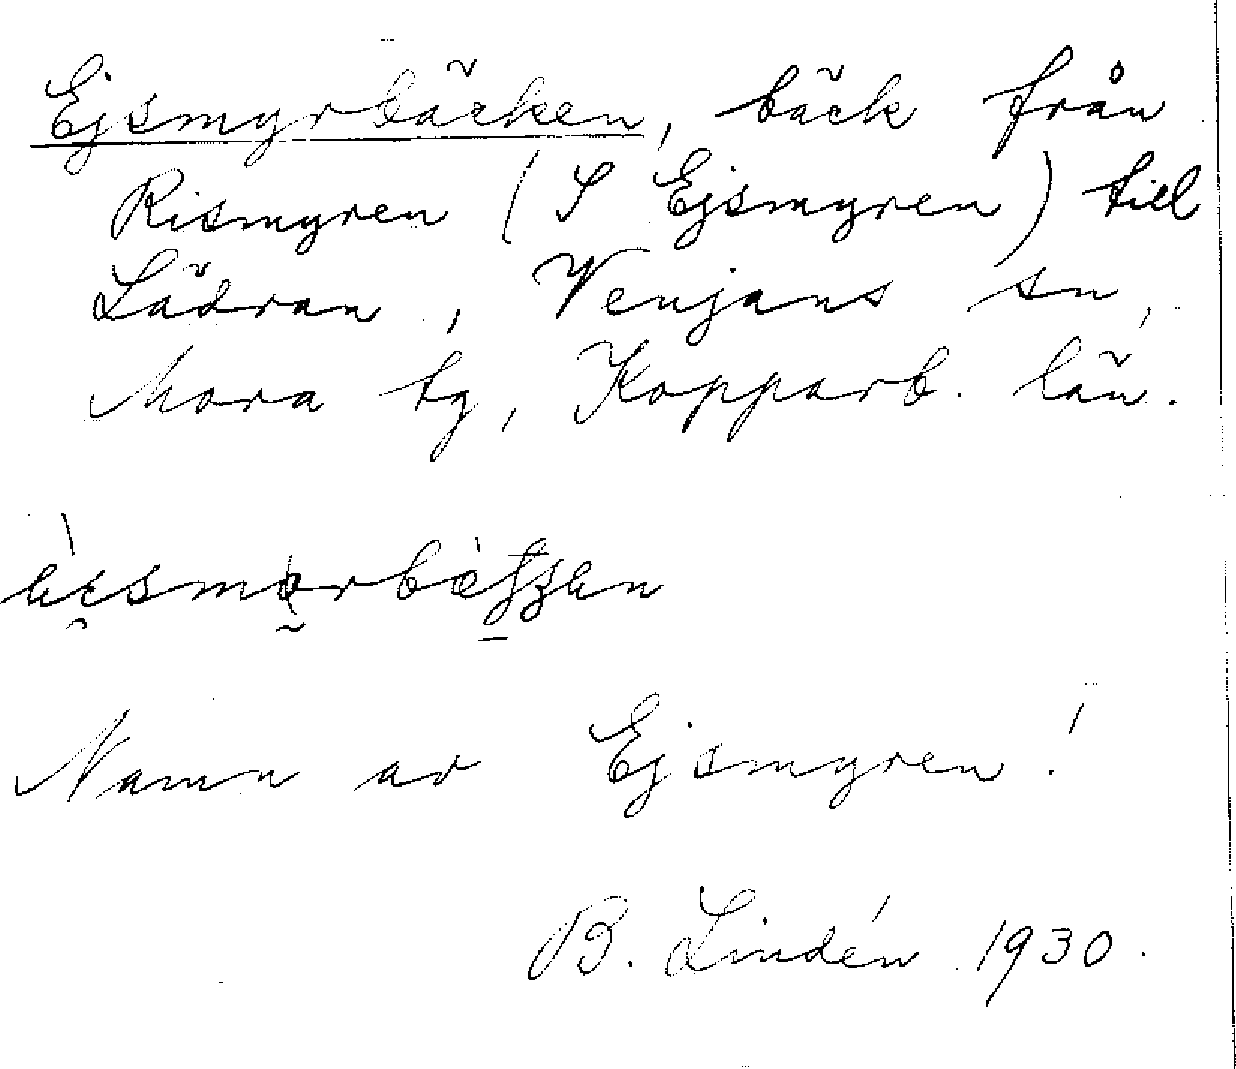 Ejsmyrbäcken, bäck från
Rismyren (S Ejsmyren) till
Lädran, Venjans sn,
Mora tg, Kopparb. län.
Namn av Ejsmyren!
B. Lindén 1930.